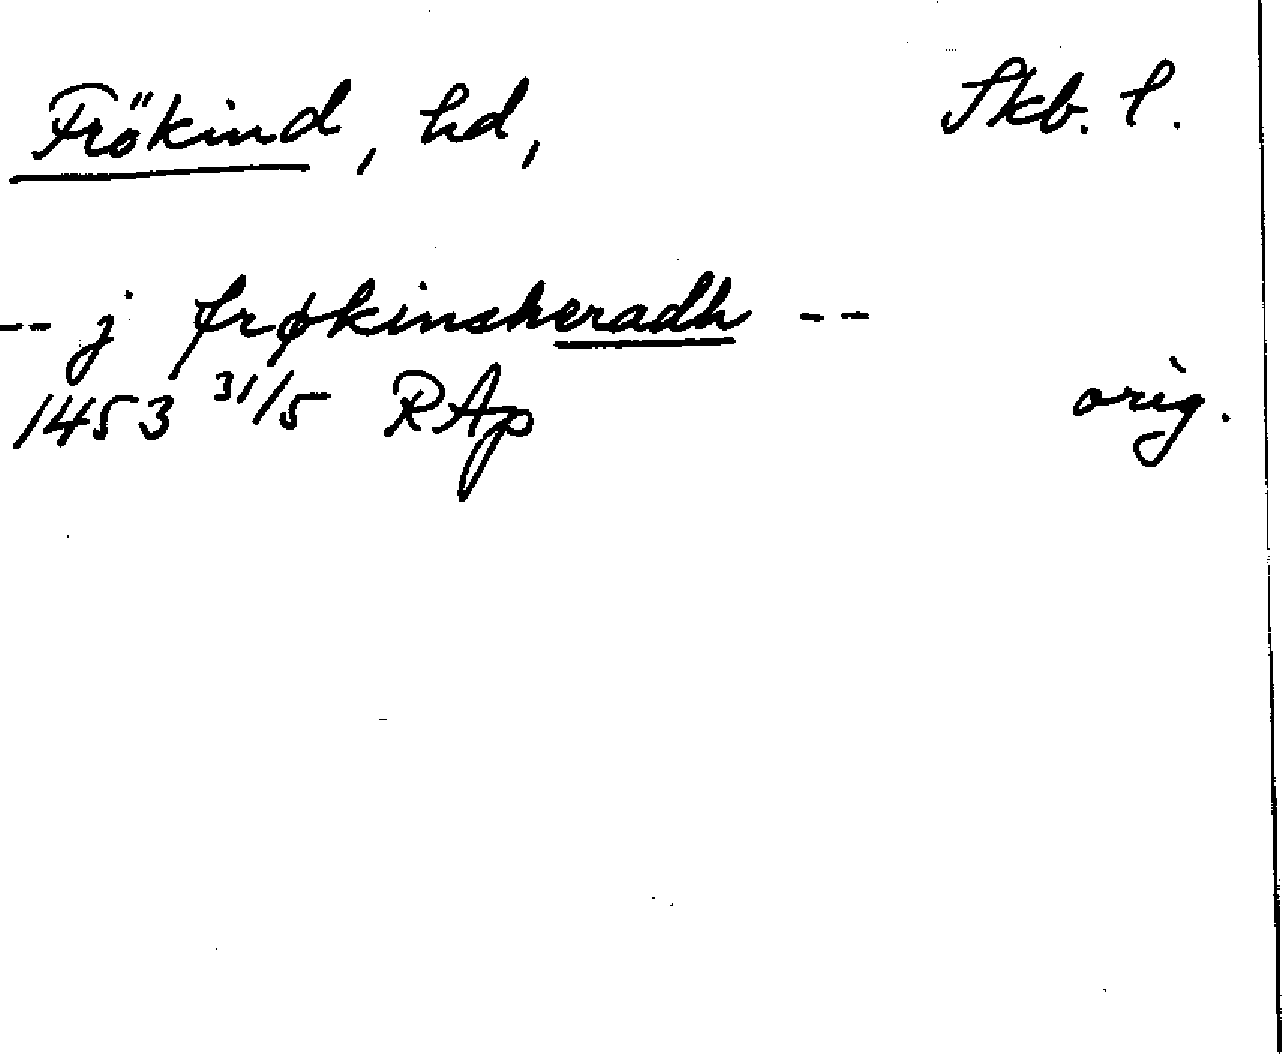 Frökind, hd, Skb. l.
-- j frøkinsheradh --
1453 31/5 RAp orig.